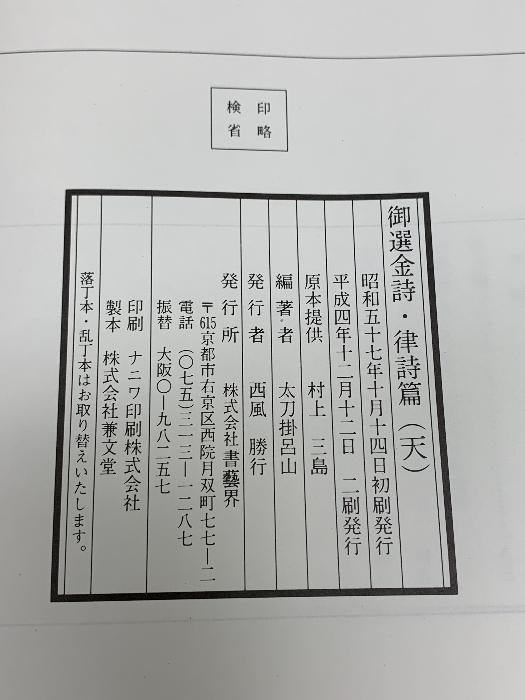 検印
省略
御選金詩・律詩篇（天）
昭和五十七年十月十四日初刷発行
平成四年十二月十二日　二刷発行
原本提供　村上　三島
編著者　太刀掛呂山
発行者　西風　勝行
発行所　株式会社書藝界
〒615京都市右京区西院月双町七七―二
電話（〇七五）三一三―一二八七
振替　大阪〇―九八二五七
印刷　ナニワ印刷株式会社
製本　株式会社兼文堂
落丁本・乱丁本はお取り替えいたします。